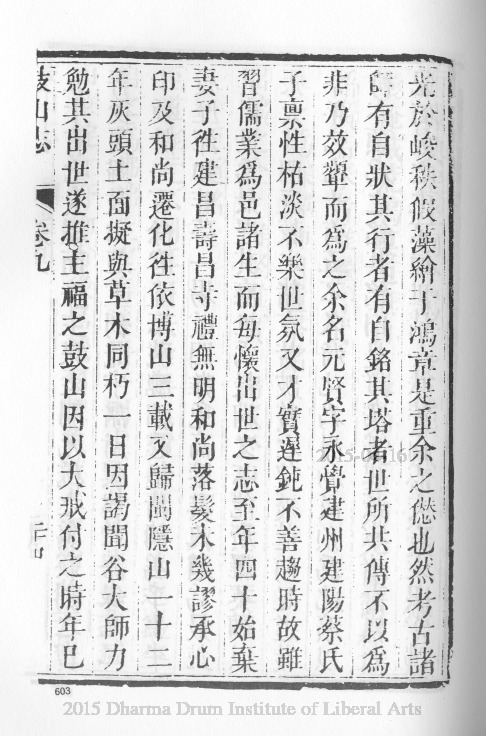 光於峻秩假藻繪于鴻章是重余之愆也然考古諸
師有自狀其行者有自銘其塔者世所共傳不以爲
非乃效顰而爲之余名元賢字永覺建州建陽蔡氏
子禀性枯淡不樂世氛又才實遲鈍不善趨時故雖
習儒業爲邑諸生而每懷出世之志至年四十始棄
妻子徃建昌壽昌寺禮無明和尚落髮未幾謬承心
印及和尚遷化徃依博山三載又歸閩隱山一十二
年灰頭土面擬與草木同朽一日因謁聞谷大師力
勉其出世遂推主福之鼓山因以大戒付之時年巳
鼓山志 卷九 二十四
603
2015 Dharma Drum Institute of Liberal Arts